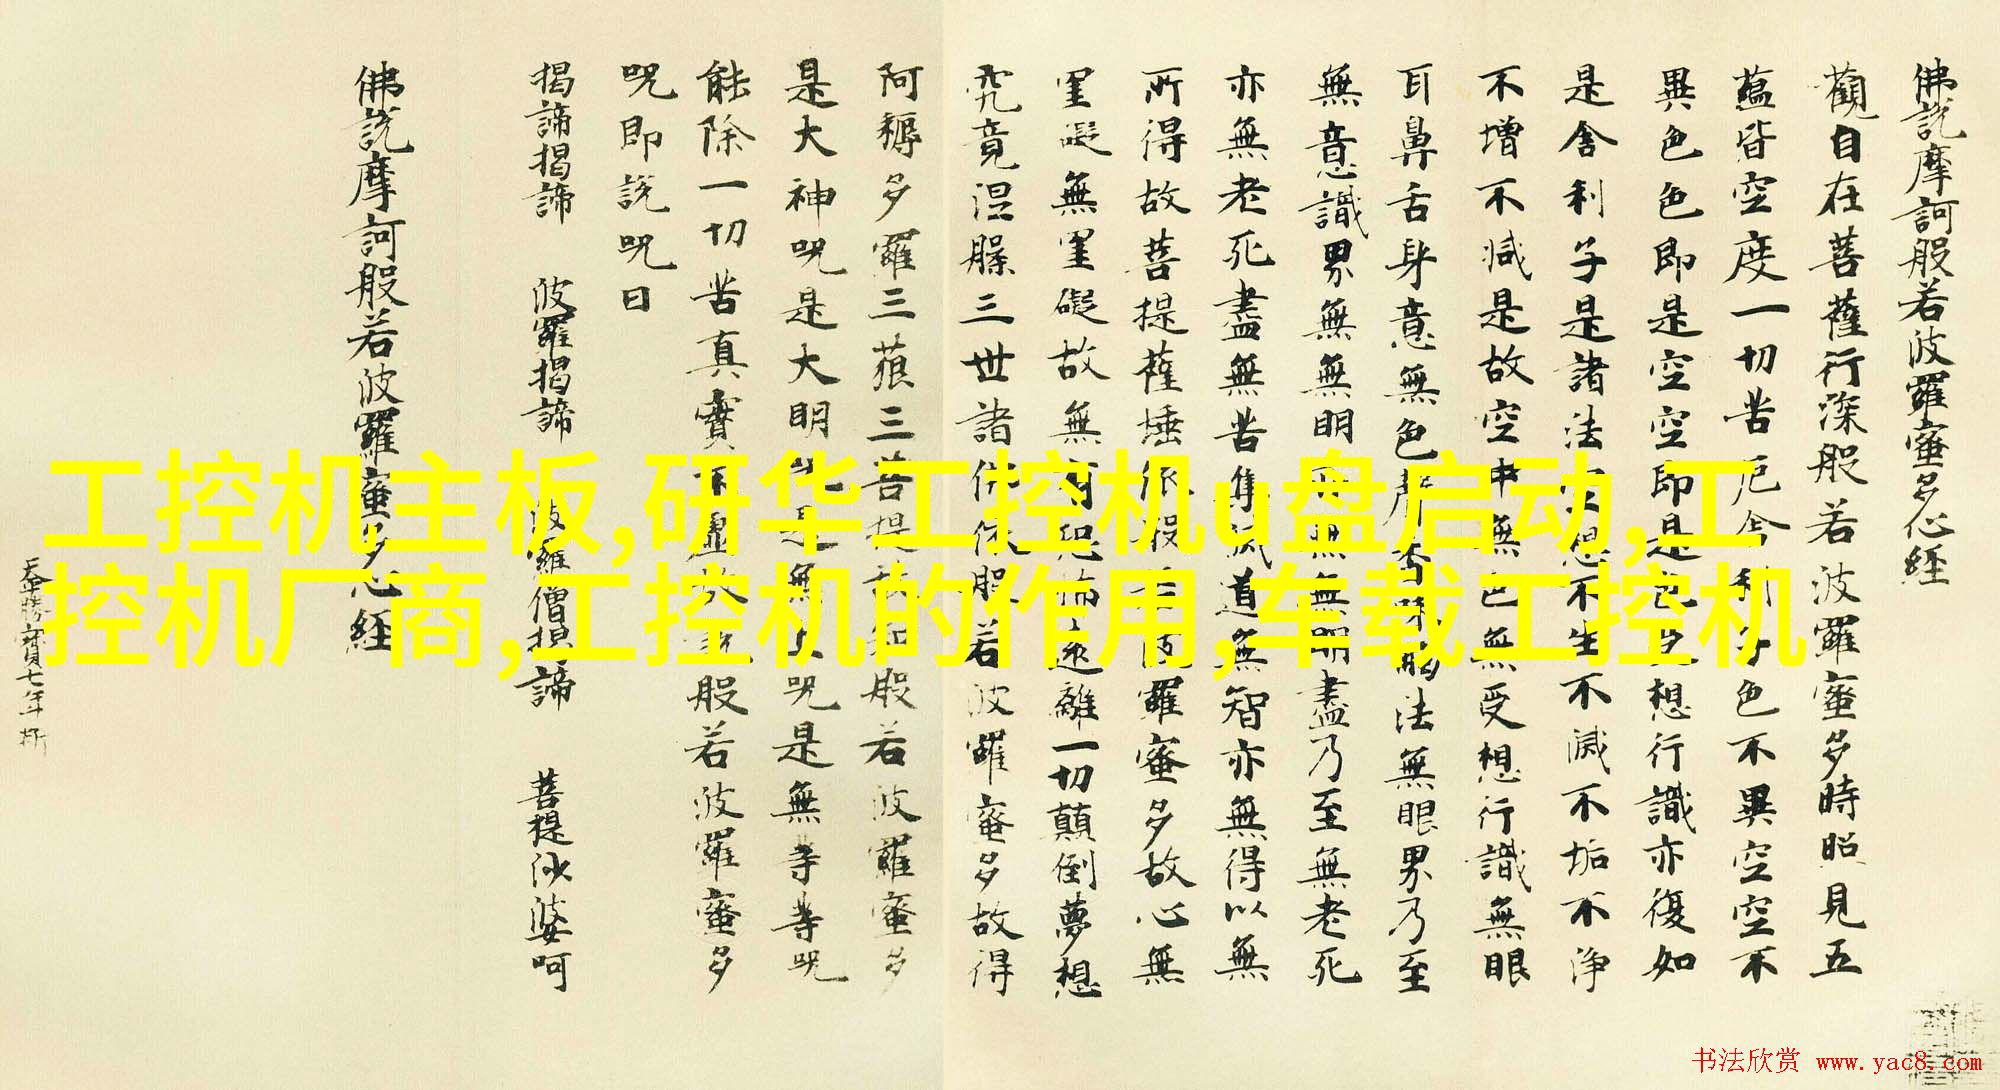 佛說摩訶般若波羅蜜多心經
觀自在菩薩行深般若波羅蜜多時照見五
蘊皆空度一切苦厄舍利子色不異空空不
異色色即是空空即是色受想行識亦復如
是舍利子是諸法空想不生不滅不垢不淨
不增不減是故空中無色無受想行識無眼
耳鼻舌身意無色聲香味觸法無眼界乃至
無意識界無無明亦無無明盡乃至無老死
亦無老死盡無苦集滅道無智亦無得以無
所得故菩提薩埵依般若波羅蜜多故心無
罣礙無罣礙故無有恐怖遠離一切顛倒夢想
究竟涅槃三世諸佛依般若波羅蜜多故得
阿耨多羅三藐三菩提故知般若波羅蜜多
是大神呪是大明呪是無上呪是無等等呪
能除一切苦真實不虛故說般若波羅蜜多
呪即說呪曰
揭諦揭諦 波羅揭諦 波羅僧揭諦 菩提沙婆呵
佛說摩訶般若波羅蜜多心經
勝寶七年
工控机主板,研华工控机u盘启动,工
控机厂商,工控机的作用,车载工控机
书法欣赏 www.yac8.com